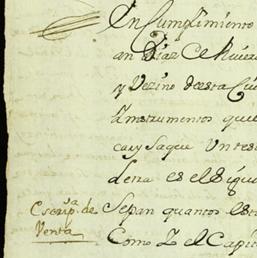 En Cumplimiento
an Diaz de Rivera
y Vezino de esta Ciu
Instrumentos que
ca y saque Un tes
Letra es el Sigui
Escrip.ª de
Venta
Sepan quantos est
Como Yo el Capit